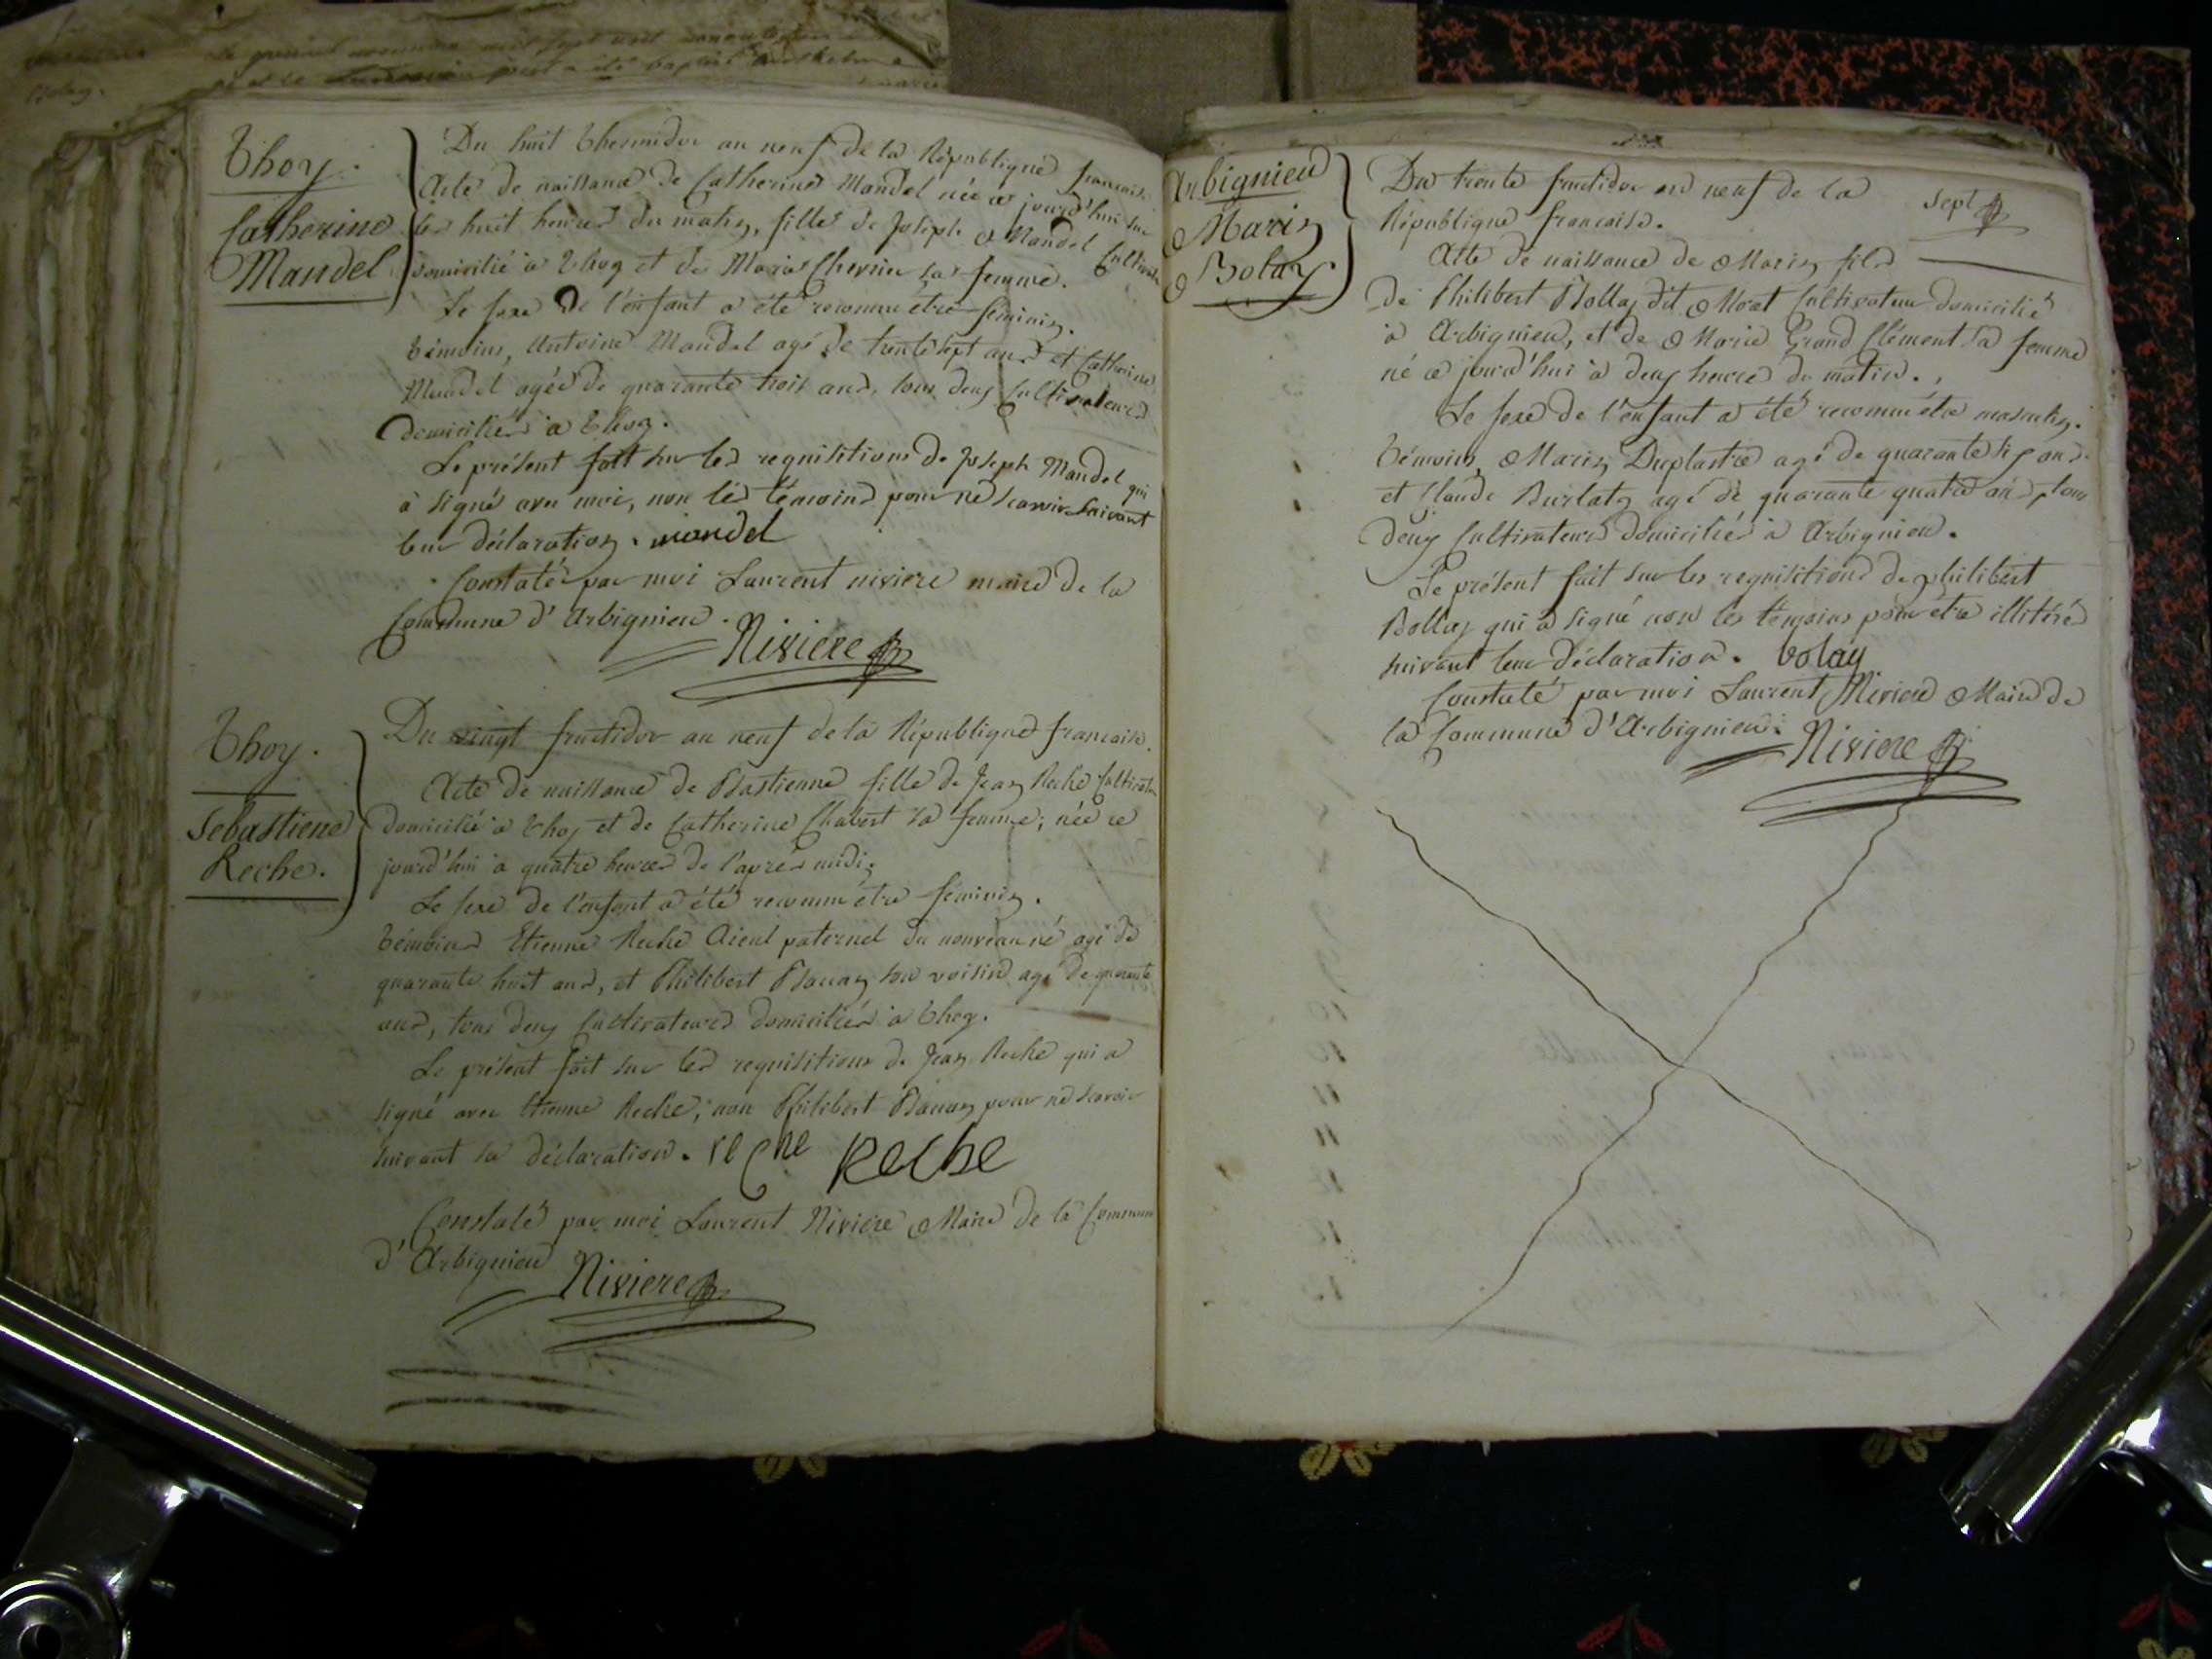 Thoy.
Catherine
Mandel
Du huit thermidor an neuf de la République francaise
Acte de naissance de Catherine Mandel née ce jourd'hui sur
les huit heures du matin, fille de Joseph Mandel Cultivateur
domicilié a Thoy et de Marie Chervier sa femme.
Le sexe de l'enfant a été reconnu etre feminin.
témoins, Antoine Mandel agé de trente sept ans et Catherine
Mandel agée de quarante trois ans, tous deux Cultivateurs
domiciliés a Thoy.
Le présent fait sur les requisitions de Joseph Mandel qui
à signé avec moi, non les témoins pour ne scavoir suivant
leur déclaration. mandel
Constaté par moi Laurent niviere maire de la
Commune d'Arbignieu.
Niviere
Thoy.
Sebastiene
Reche.
Du vingt fructidor an neuf de la République francaise.
Acte de naissance de Bastienne fille de Jean Reche Cultivateur
domicilié a Thoy et de Catherine Chabert sa femme; née ce
jourd'hui a quatre heures de l'aprés midi;
Le sexe de l'enfant a été reconnu etre féminin.
témoins Etienne Reche Aieul paternel du nouveau né agé de
quarante huit ans, et Philibert son voisin agé de quarante
ans, tous deux Cultivateurs domiciliés a Thoy.
Le présent fait sur les requisitions de Jean Reche qui a
signé avec Etienne Reche; non Philibert pour ne scavoir
suivant sa déclaration. reche Reche
Constaté par moi Laurent Niviere Maire de la Commune
d'Arbignieu
Niviere
Arbignieu
Marin
Bolay
Du trente fructidor an neuf de la
République francaise.
sept
Acte de naissance de Marin fils
de Philibert Bollay dit Morat Cultivateur domicilié
a Arbignieu, et de Marie Grand Clément sa femme
né ce jourd'hui a deux heures du matin.
Le sexe de l'enfant a été reconnu étre masculin.
témoins, Marin Duplastre agé de quarante six ans
et Claude Burlat agé de quarante quatre ans, tous
deux Cultivateurs domiciliés a Arbignieu.
Le présent fait sur les requisitions de philibert
Bollay qui a signé non les témoins pour étre illitérés
suivant leur déclaration. bolay
Constaté par moi Laurent Niviere Maire de
la Commune d'Arbignieu.
Niviere